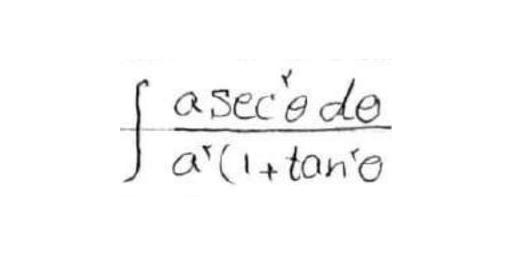 ∫ a sec²θ dθ / a²(1+tan²θ